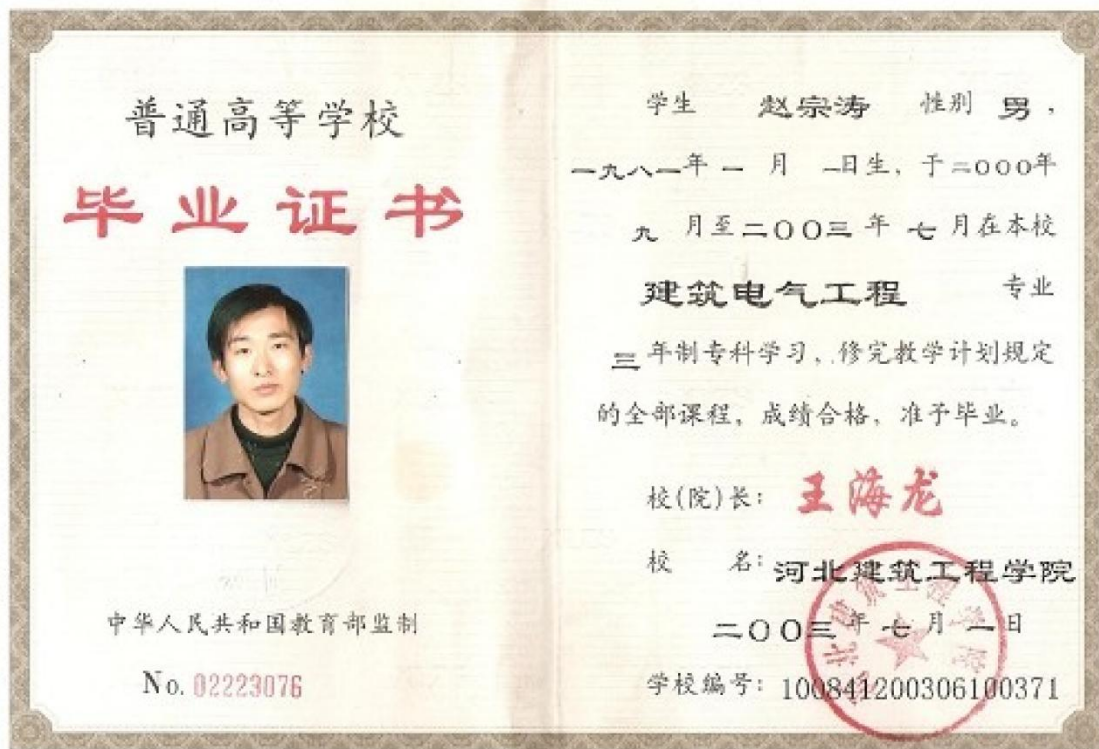 普通高等学校
毕业证书
中华人民共和国教育部监制
No. 02223076
学生 赵宗涛 性别 男，
一九八一年 一 月 一日生，于二〇〇〇年
九 月至二〇〇三 年 七 月在本校
建筑电气工程 专业
三 年制专科学习，修完教学计划规定
的全部课程，成绩合格，准予毕业。
校(院)长: 王海龙
校 名: 河北建筑工程学院
二〇〇三 年 七 月 一 日
学校编号: 100841200306100371
河北建筑工程学院